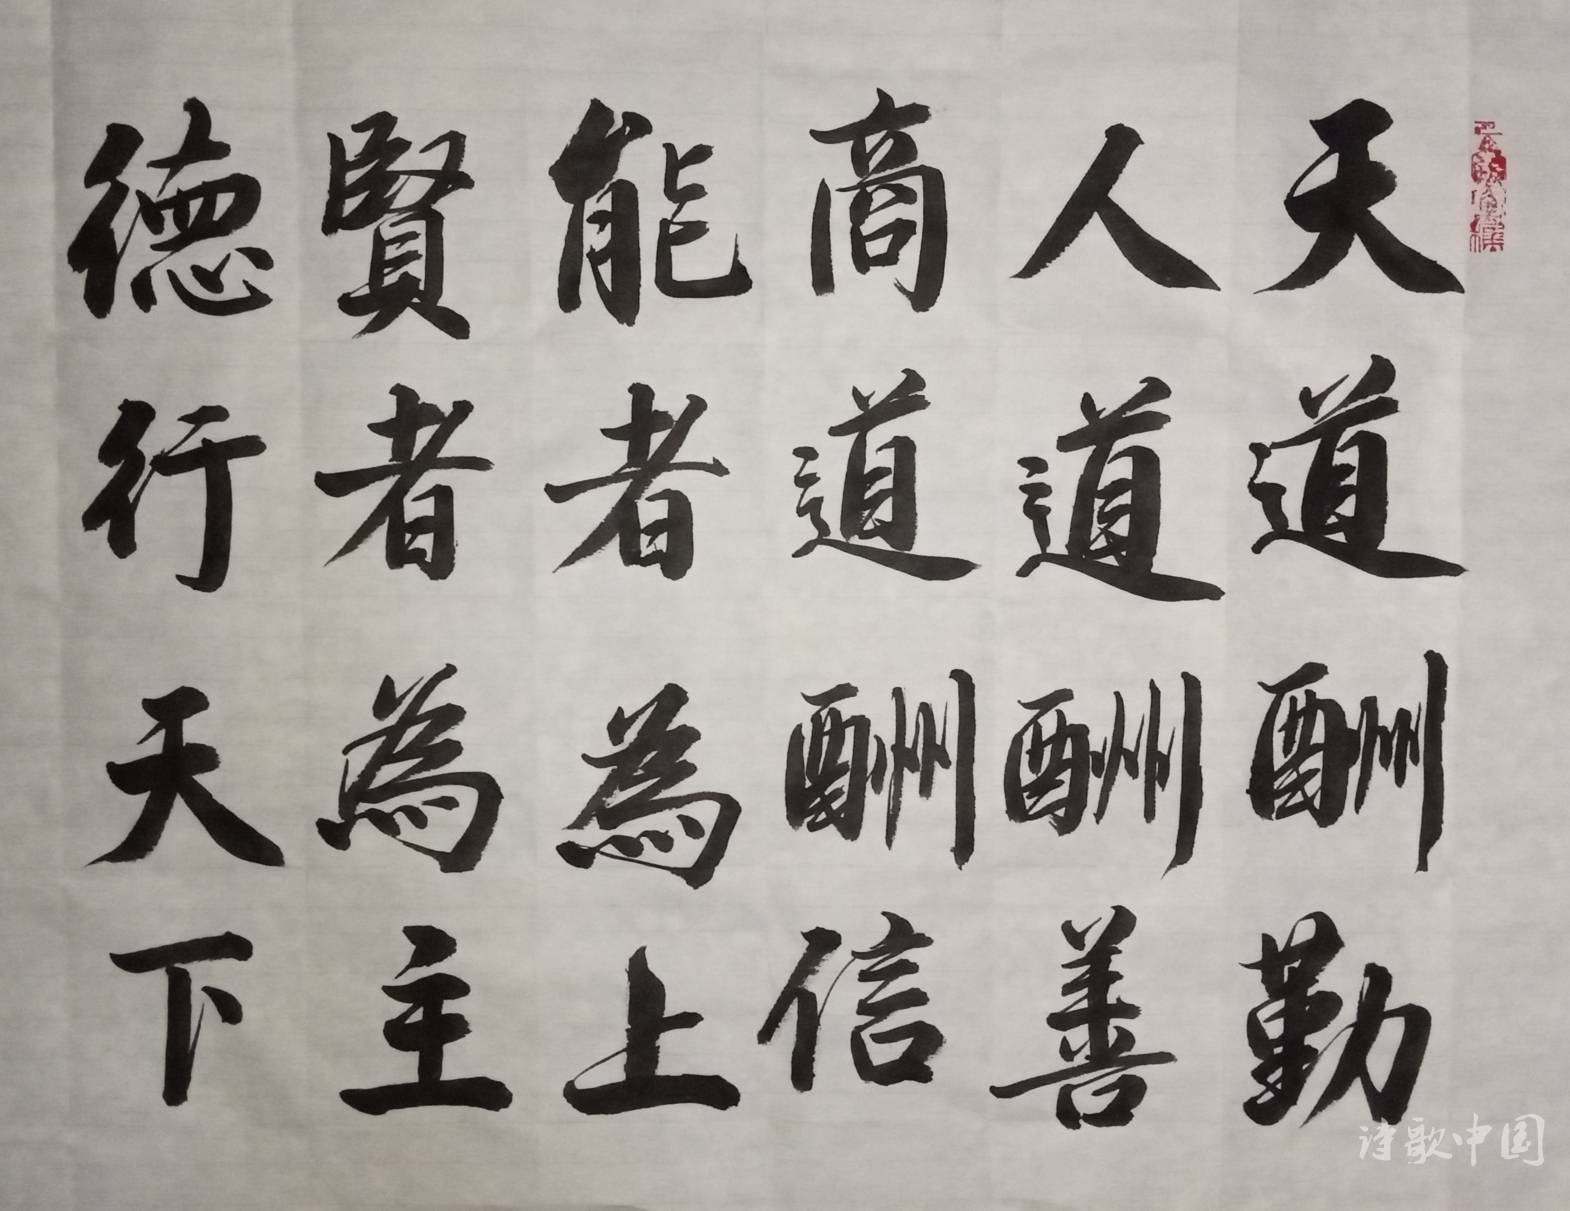 天道酬勤
人道酬善
商道酬信
能者為上
賢者為主
德行天下
诗歌中国